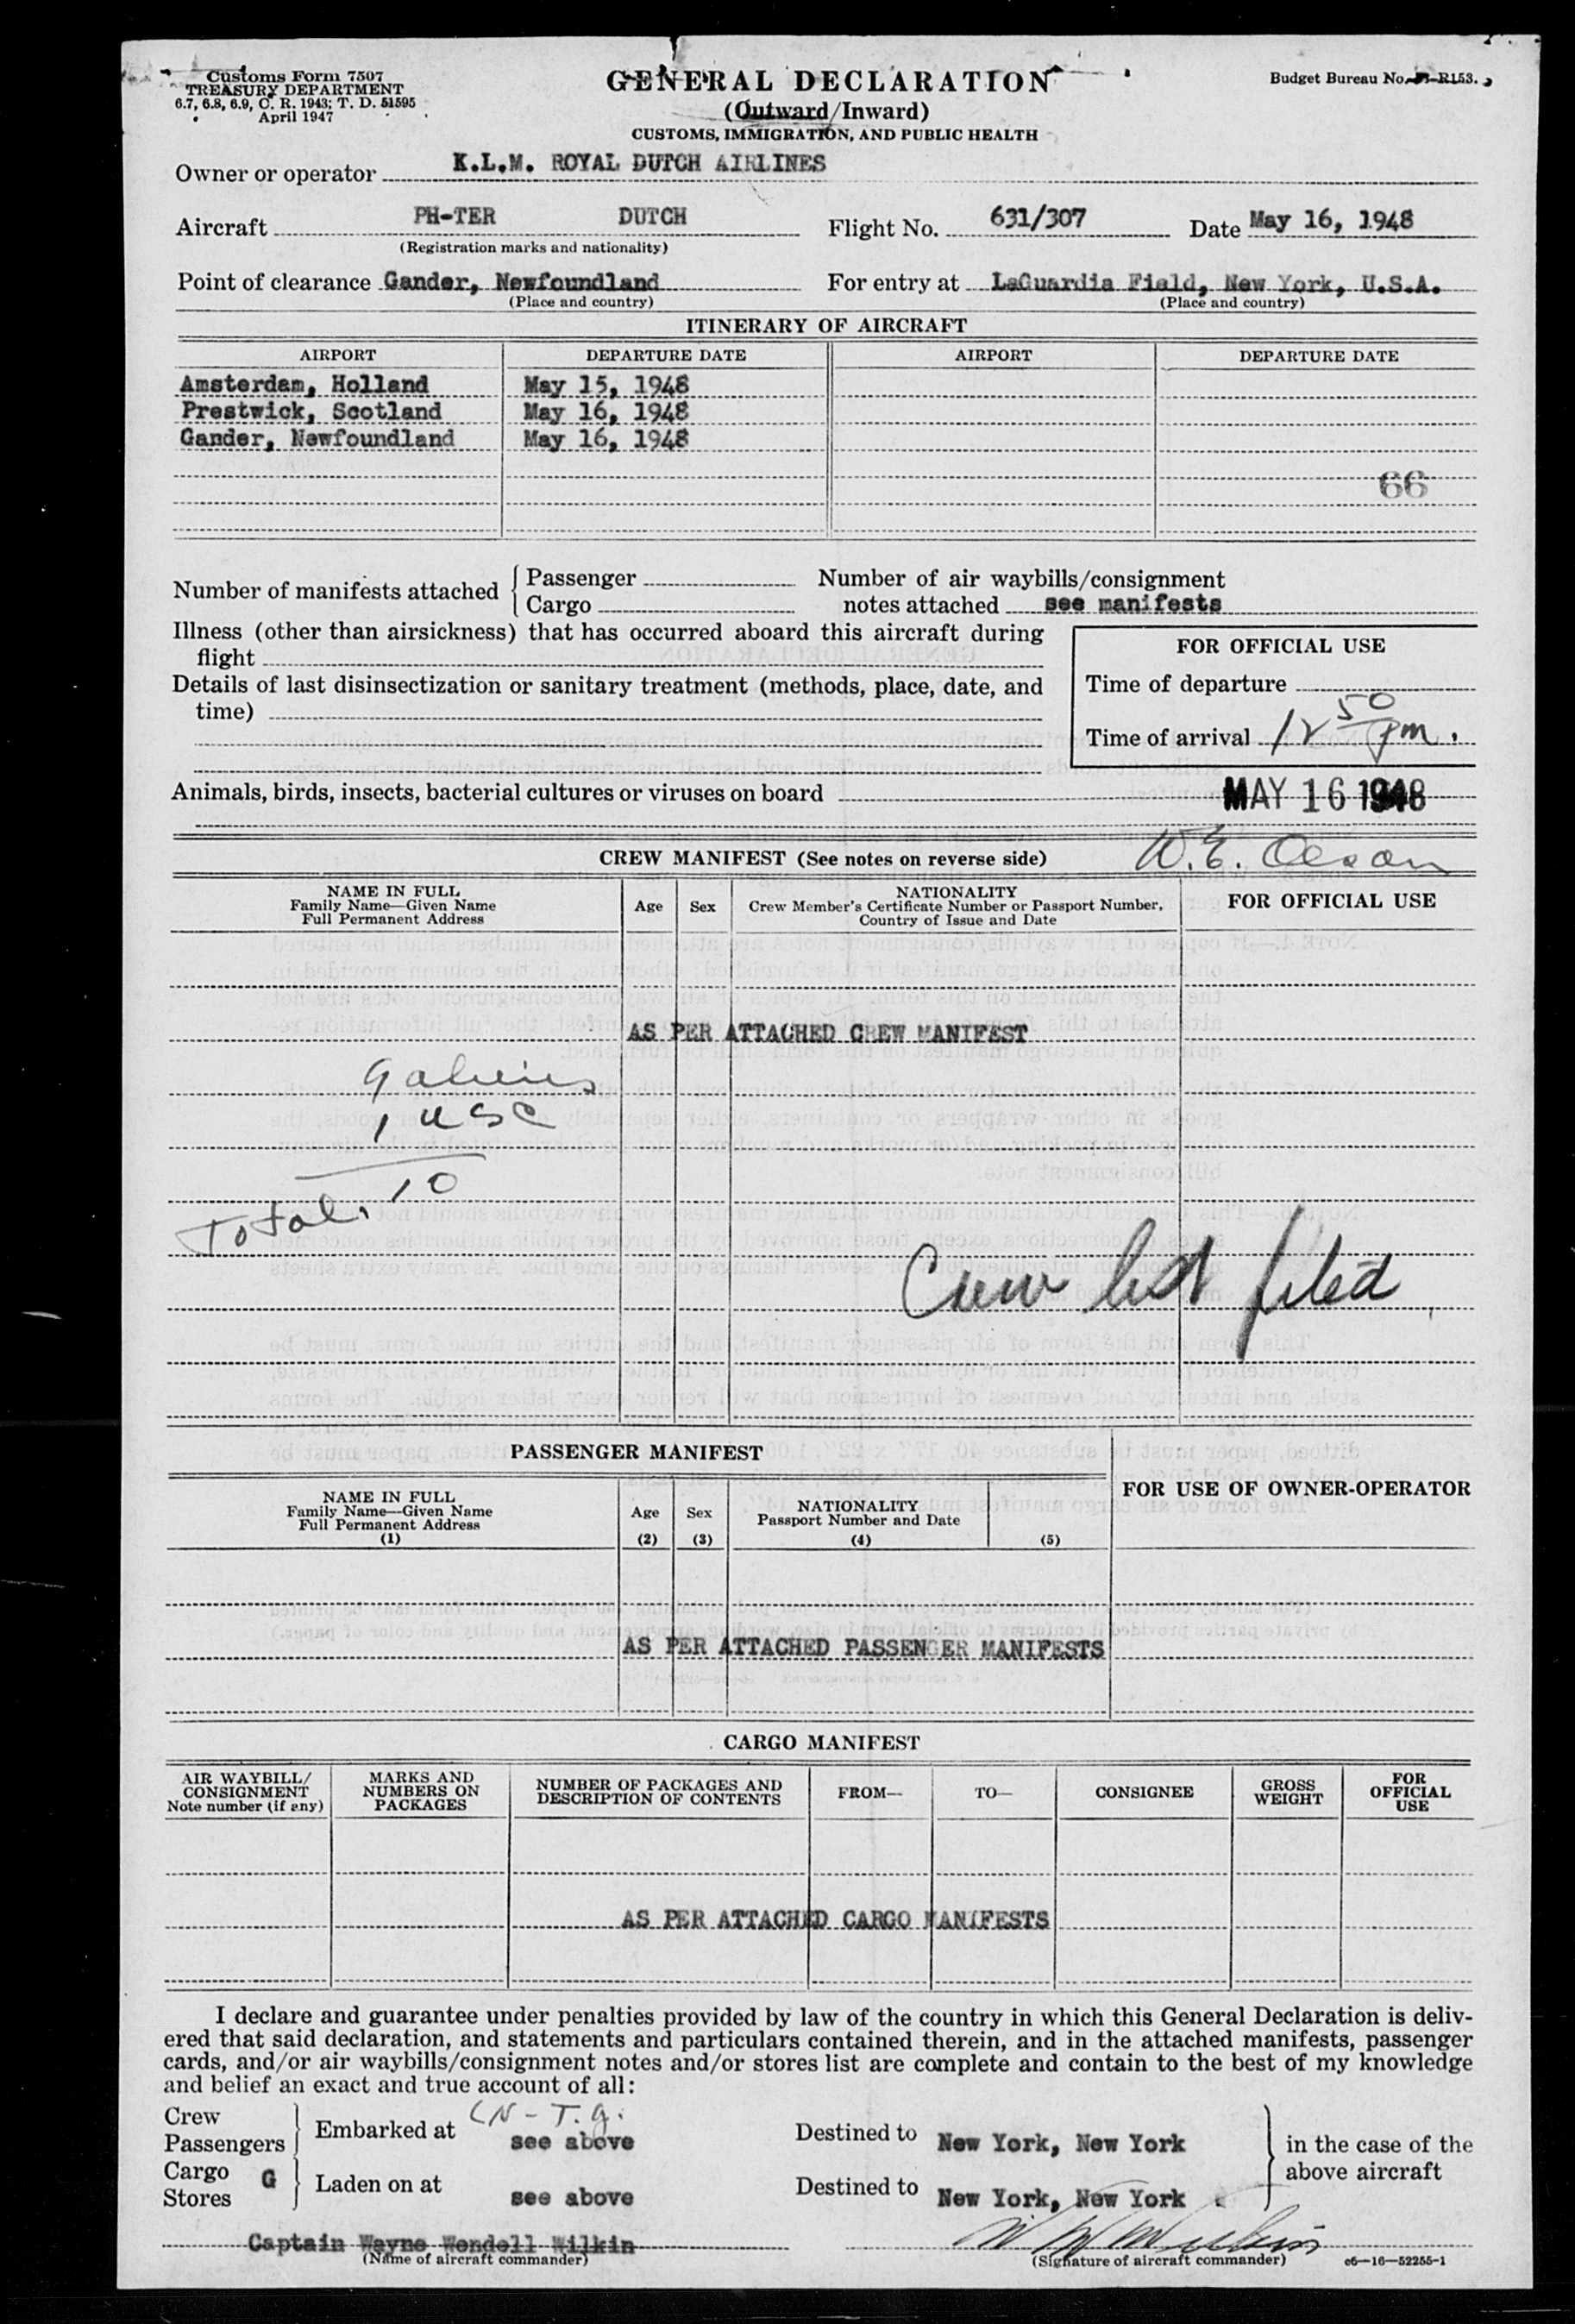 Customs Form 7507
TREASURY DEPARTMENT
6.7, 6.8, 6.9, C. R. 1943; T. D. 51595
April 1947
GENERAL DECLARATION
(Outward/Inward)
CUSTOMS, IMMIGRATION, AND PUBLIC HEALTH
Budget Bureau No. R153.
Owner or operator K.L.M. ROYAL DUTCH AIRLINES
Aircraft PH-TER DUTCH Flight No. 631/307 Date May 16, 1948
(Registration marks and nationality)
Point of clearance Gander, Newfoundland For entry at LaGuardia Field, New York, U.S.A.
(Place and country) (Place and country)
ITINERARY OF AIRCRAFT
AIRPORT DEPARTURE DATE AIRPORT DEPARTURE DATE
Amsterdam, Holland May 15, 1948
Prestwick, Scotland May 16, 1948
Gander, Newfoundland May 16, 1948
66
Number of manifests attached Passenger Number of air waybills/consignment
Cargo notes attached see manifests
Illness (other than airsickness) that has occurred aboard this aircraft during
flight
FOR OFFICIAL USE
Details of last disinsectization or sanitary treatment (methods, place, date, and
time)
Time of departure
Time of arrival 12 50 pm.
Animals, birds, insects, bacterial cultures or viruses on board
MAY 16 1948
CREW MANIFEST (See notes on reverse side) W. E. Olson
NAME IN FULL
Family Name—Given Name
Full Permanent Address
Age Sex
NATIONALITY
Crew Member's Certificate Number or Passport Number,
Country of Issue and Date
FOR OFFICIAL USE
AS PER ATTACHED CREW MANIFEST
9 aliens
1 USC
Total. 10
Crew list filed
PASSENGER MANIFEST
NAME IN FULL
Family Name—Given Name
Full Permanent Address
(1)
Age
(2)
Sex
(3)
NATIONALITY
Passport Number and Date
(4)
(5)
FOR USE OF OWNER-OPERATOR
AS PER ATTACHED PASSENGER MANIFESTS
CARGO MANIFEST
AIR WAYBILL/
CONSIGNMENT
Note number (if any)
MARKS AND
NUMBERS ON
PACKAGES
NUMBER OF PACKAGES AND
DESCRIPTION OF CONTENTS
FROM—
TO—
CONSIGNEE
GROSS
WEIGHT
FOR
OFFICIAL
USE
AS PER ATTACHED CARGO MANIFESTS
I declare and guarantee under penalties provided by law of the country in which this General Declaration is deliv-
ered that said declaration, and statements and particulars contained therein, and in the attached manifests, passenger
cards, and/or air waybills/consignment notes and/or stores list are complete and contain to the best of my knowledge
and belief an exact and true account of all:
Crew
Passengers
Embarked at see above
Destined to New York, New York
in the case of the
above aircraft
Cargo
Stores
G
Laden on at see above
Destined to New York, New York
Captain Wayne Wendell Wilkin
(Name of aircraft commander)
(Signature of aircraft commander)
c6—16—52255-1